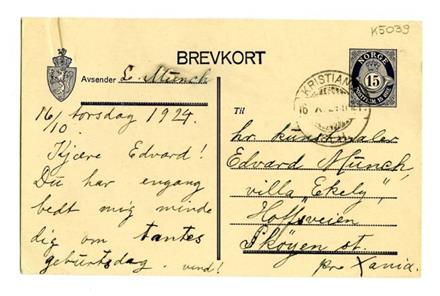 K5039
BREVKORT
Avsender L. Munch
KRISTIANIA
NORGE
15
Til
16/10. torsdag 1924.
Kjære Edvard!
Du har engang
bedt mig minde
dig om tantes
geburtsdag. vend!
hr. kunstmaler
Edvard Munch,
villa "Ekely",
Hoffsveien
Skøyen st.
pr. Xania.